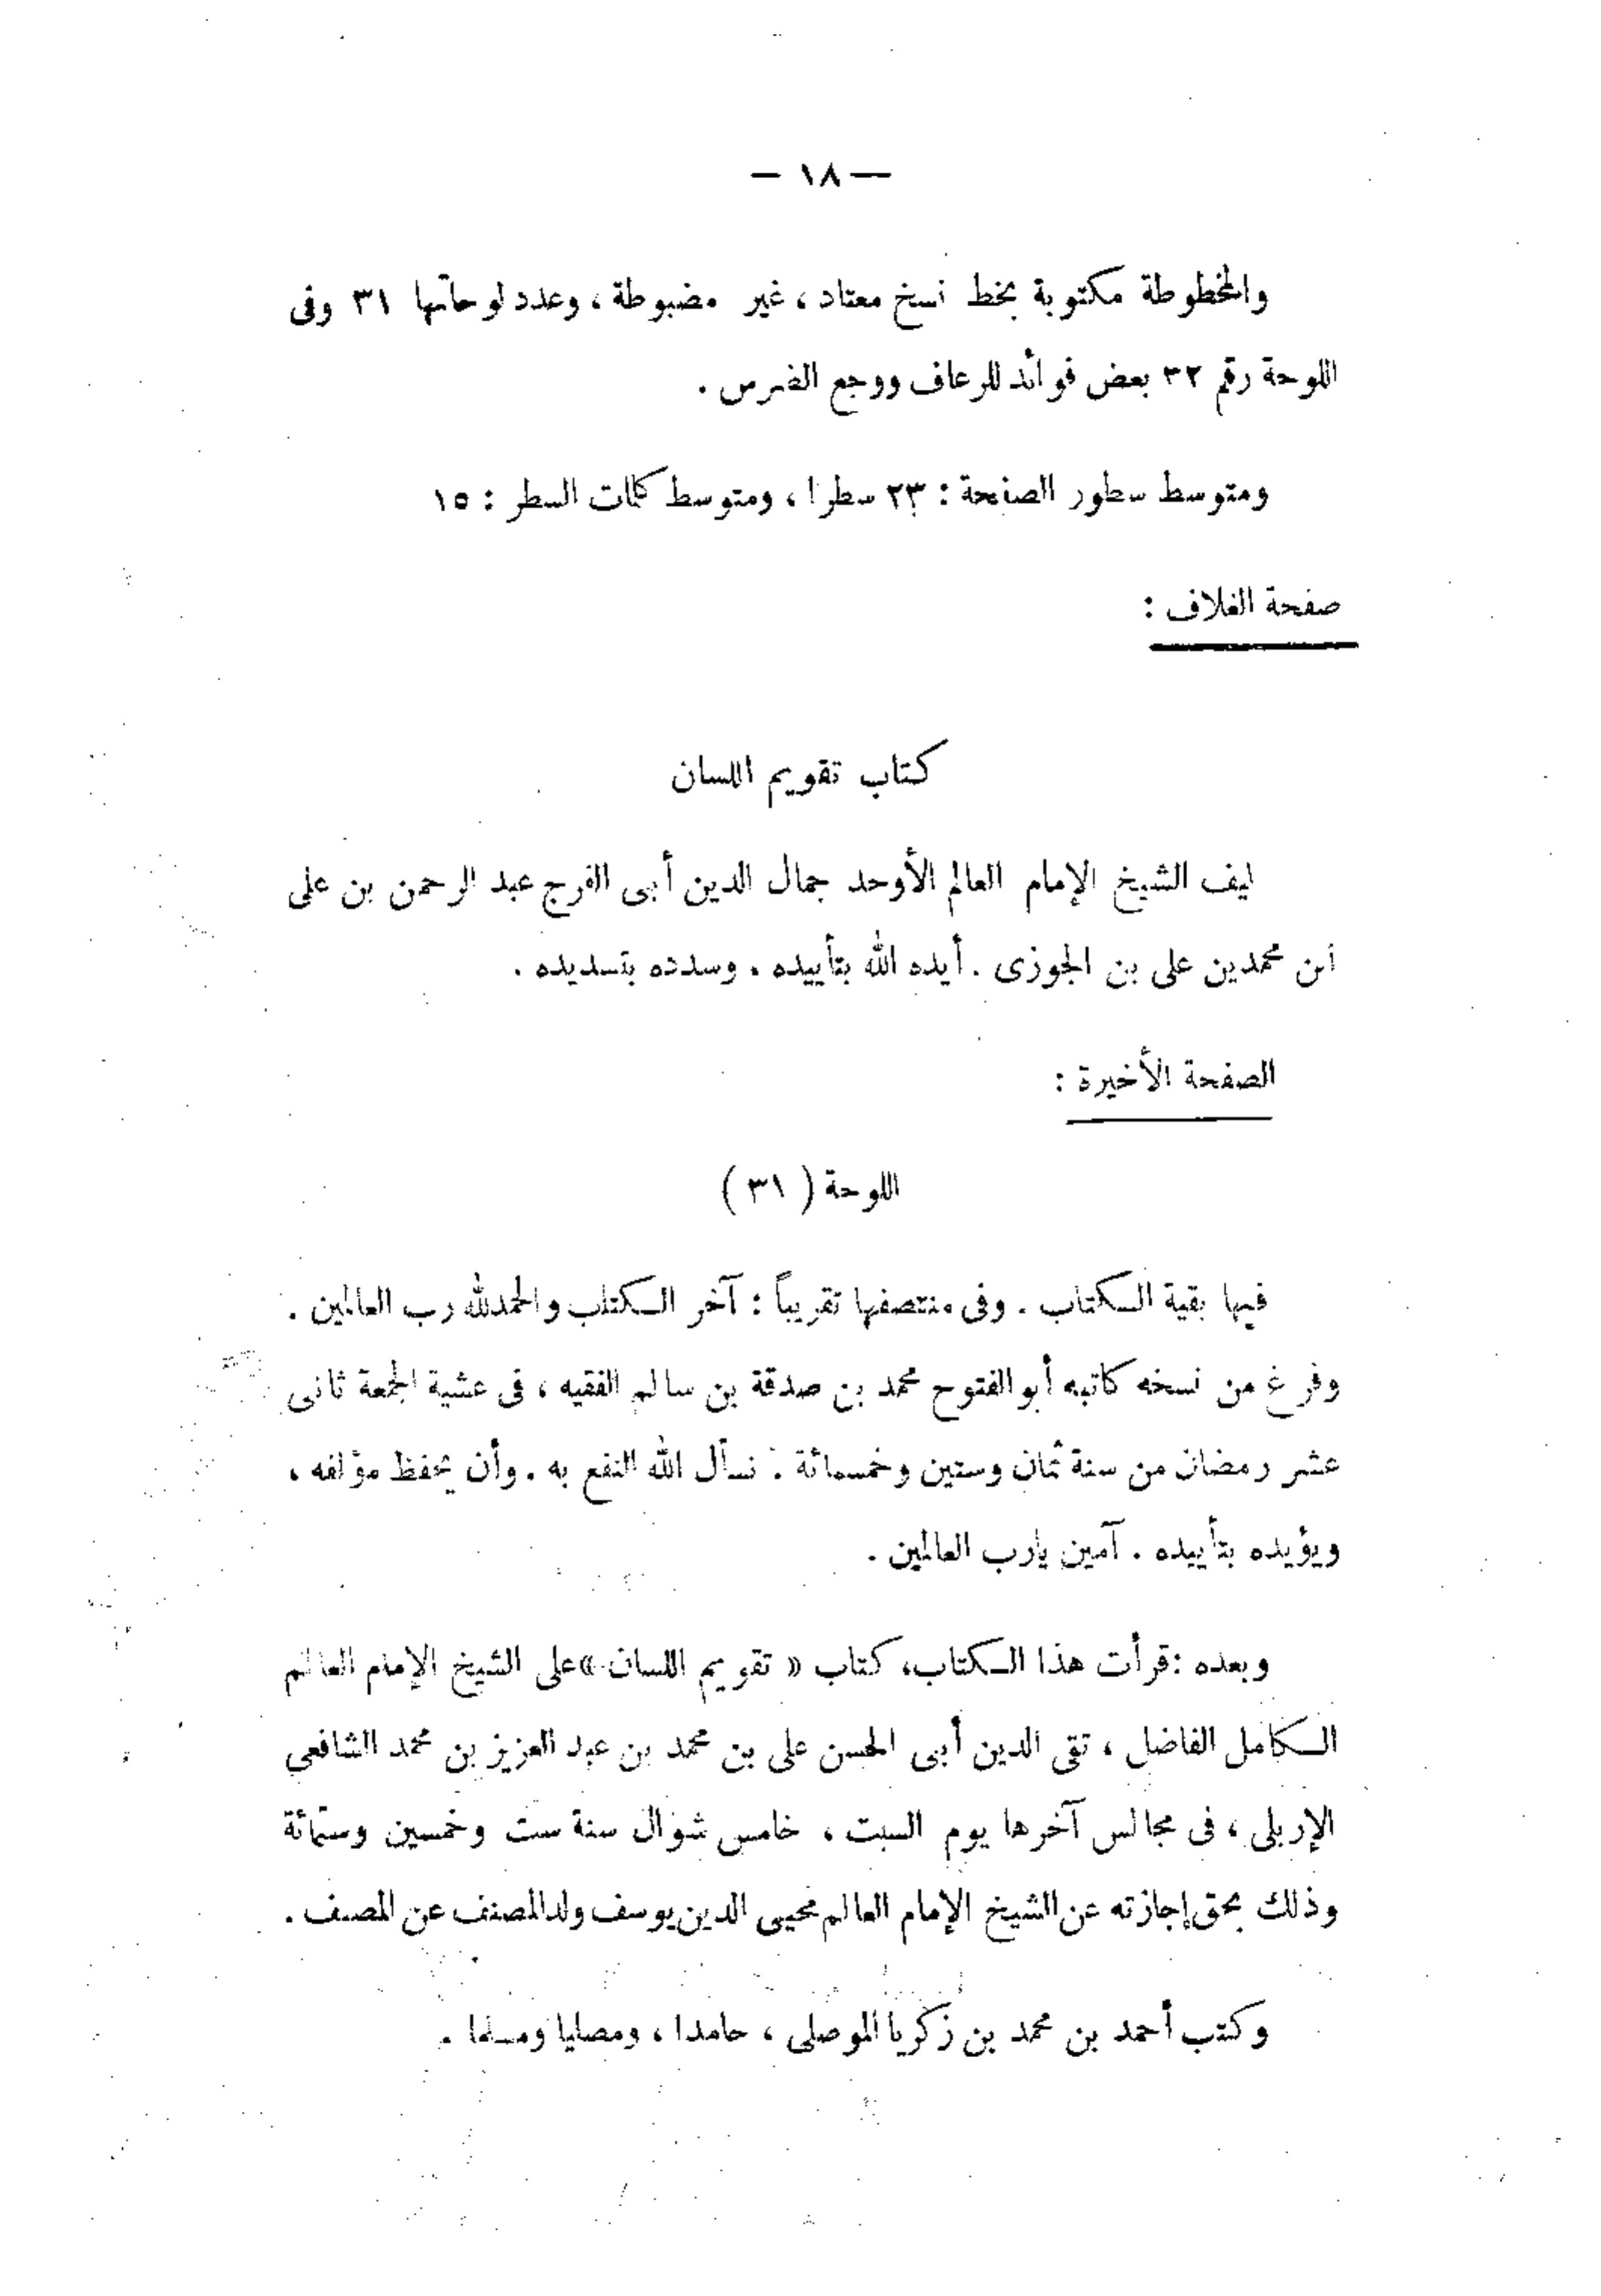 — ١٨ —
والمخطوطة مكتوبة بخط نسخ معتاد ، غير مضبوطة ، وعدد لوحاتها ٣١ وفى
اللوحة رقم ٣٢ بعض فوائد للرعاف ووجع الضرس .
ومتوسط سطور الصفحة : ٢٣ سطرا ، ومتوسط كلمات السطر : ١٥
صفحة الغلاف :
كتاب تقويم اللسان
ليف الشيخ الإمام العالم الأوحد جمال الدين أبى الفرج عبد الرحمن بن على
ابن محمد بن على بن الجوزى . أيده الله بتأييده . وسدده بتسديده .
الصفحة الأخيرة :
اللوحة ( ٣١ )
فيها بقية الكتاب . وفى منتصفها تقريباً : آخر الكتاب والحمد لله رب العالمين .
وفرغ من نسخه كاتبه أبو الفتوح محمد بن صدقة بن سالم الفقيه ، فى عشية الجمعة ثانى
عشر رمضان من سنة ثمان وستين وخمسمائة . نسأل الله النفع به . وأن يحفظ مؤلفه ،
ويؤيده بتأييده . آمين يارب العالمين .
وبعده : قرأت هذا الكتاب ، كتاب « تقويم اللسان » على الشيخ الإمام العالم
الكامل الفاضل ، تقى الدين أبى الحسن على بن محمد بن عبد العزيز بن محمد الشافعى
الإربلى ، فى مجالس آخرها يوم السبت ، خامس شوال سنة ست وخمسين وستمائة
وذلك بحق إجازته عن الشيخ الإمام العالم محيى الدين يوسف ولد المصنف عن المصنف .
وكتب أحمد بن محمد بن زكريا الموصلى ، حامدا ، ومصليا ومسلما .